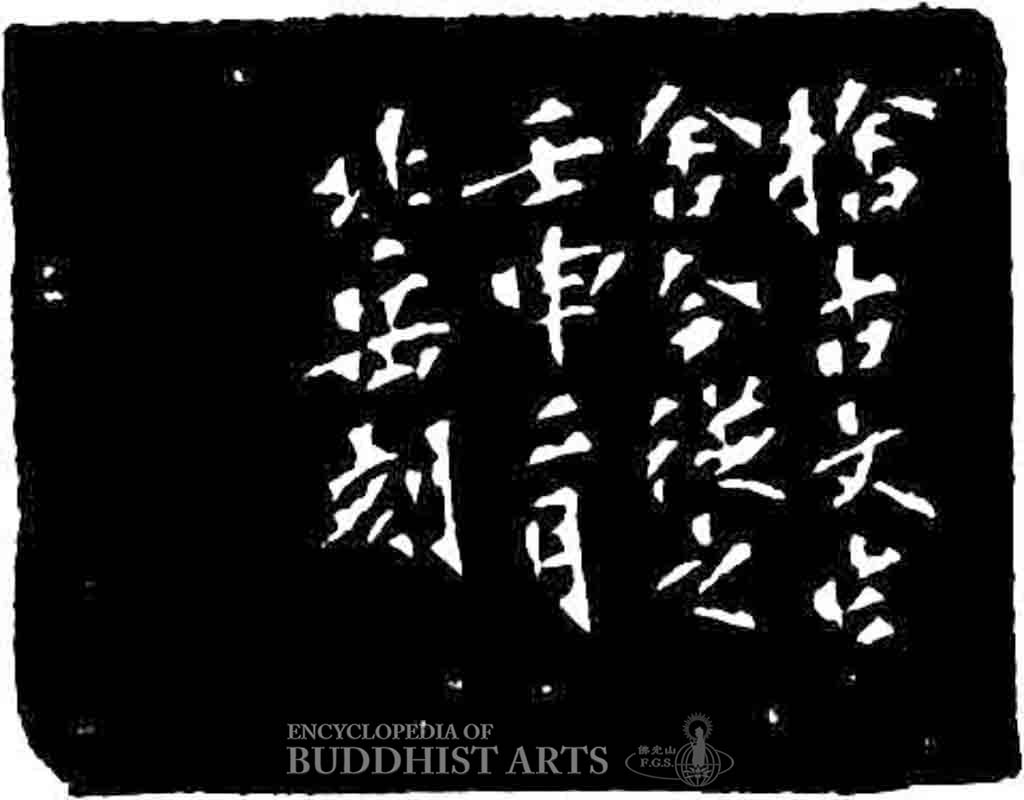 捨古文作
舍今從之
壬申二月
北岳刻
ENCYCLOPEDIA OF
BUDDHIST ARTS
佛光山
F.G.S.